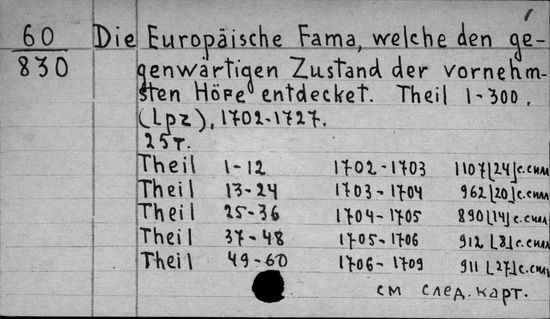 1
60 Die Europäische Fama, welche den ge-
830 genwärtigen Zustand der vornehm-
sten Höfe entdecket. Theil 1-300.
(Lpz), 1702-1727.
25т.
Theil 1-12 1702-1703 1107[24]с.илл
Theil 13-24 1703-1704 962[20]с.илл
Theil 25-36 1704-1705 890[14]с.илл
Theil 37-48 1705-1706 912[8]с.илл
Theil 49-60 1706-1709 911[27]с.илл
см след.карт.